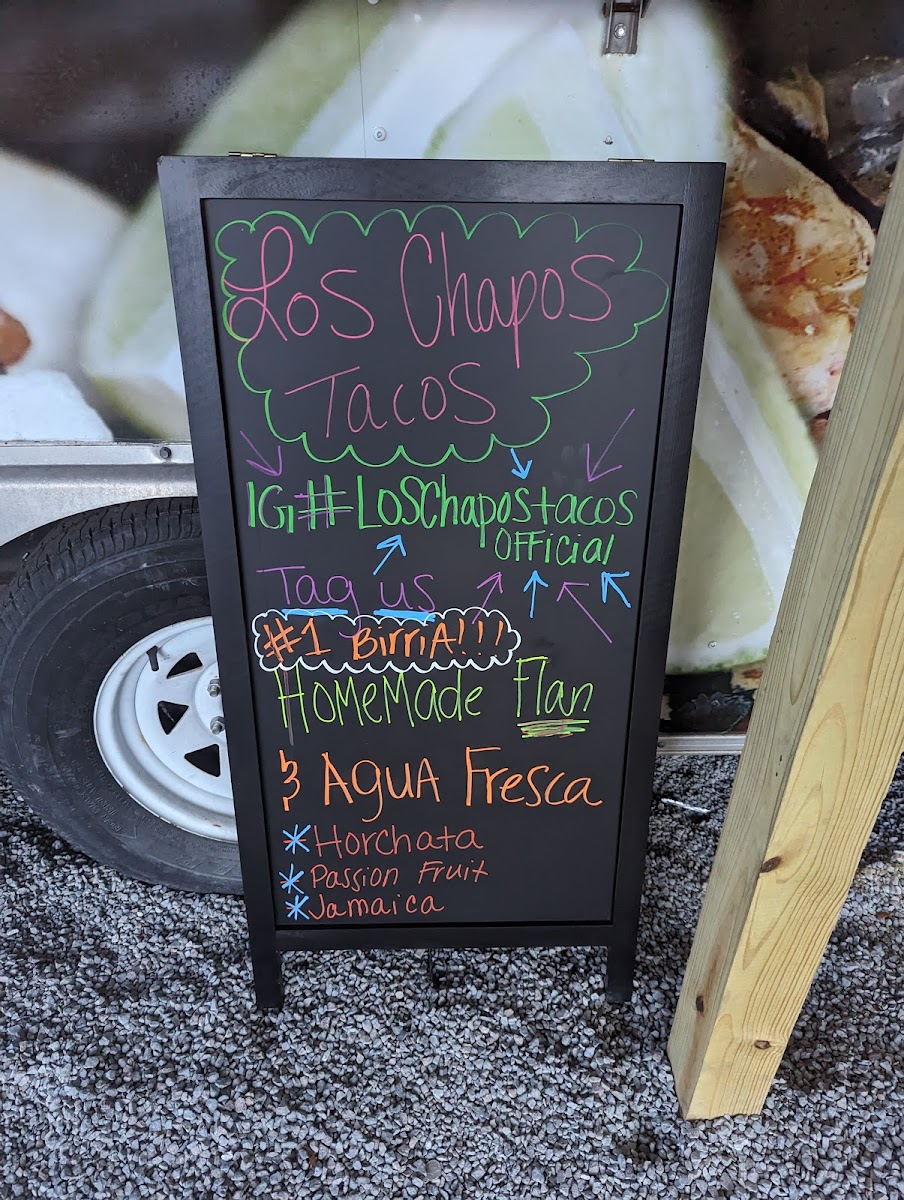 Los Chapos
Tacos
IG# LosChapostacos
OFFicial
Tag us
#1 BirriA!!!
HomeMade Flan
& AguA Fresca
* Horchata
* Passion Fruit
* Jamaica